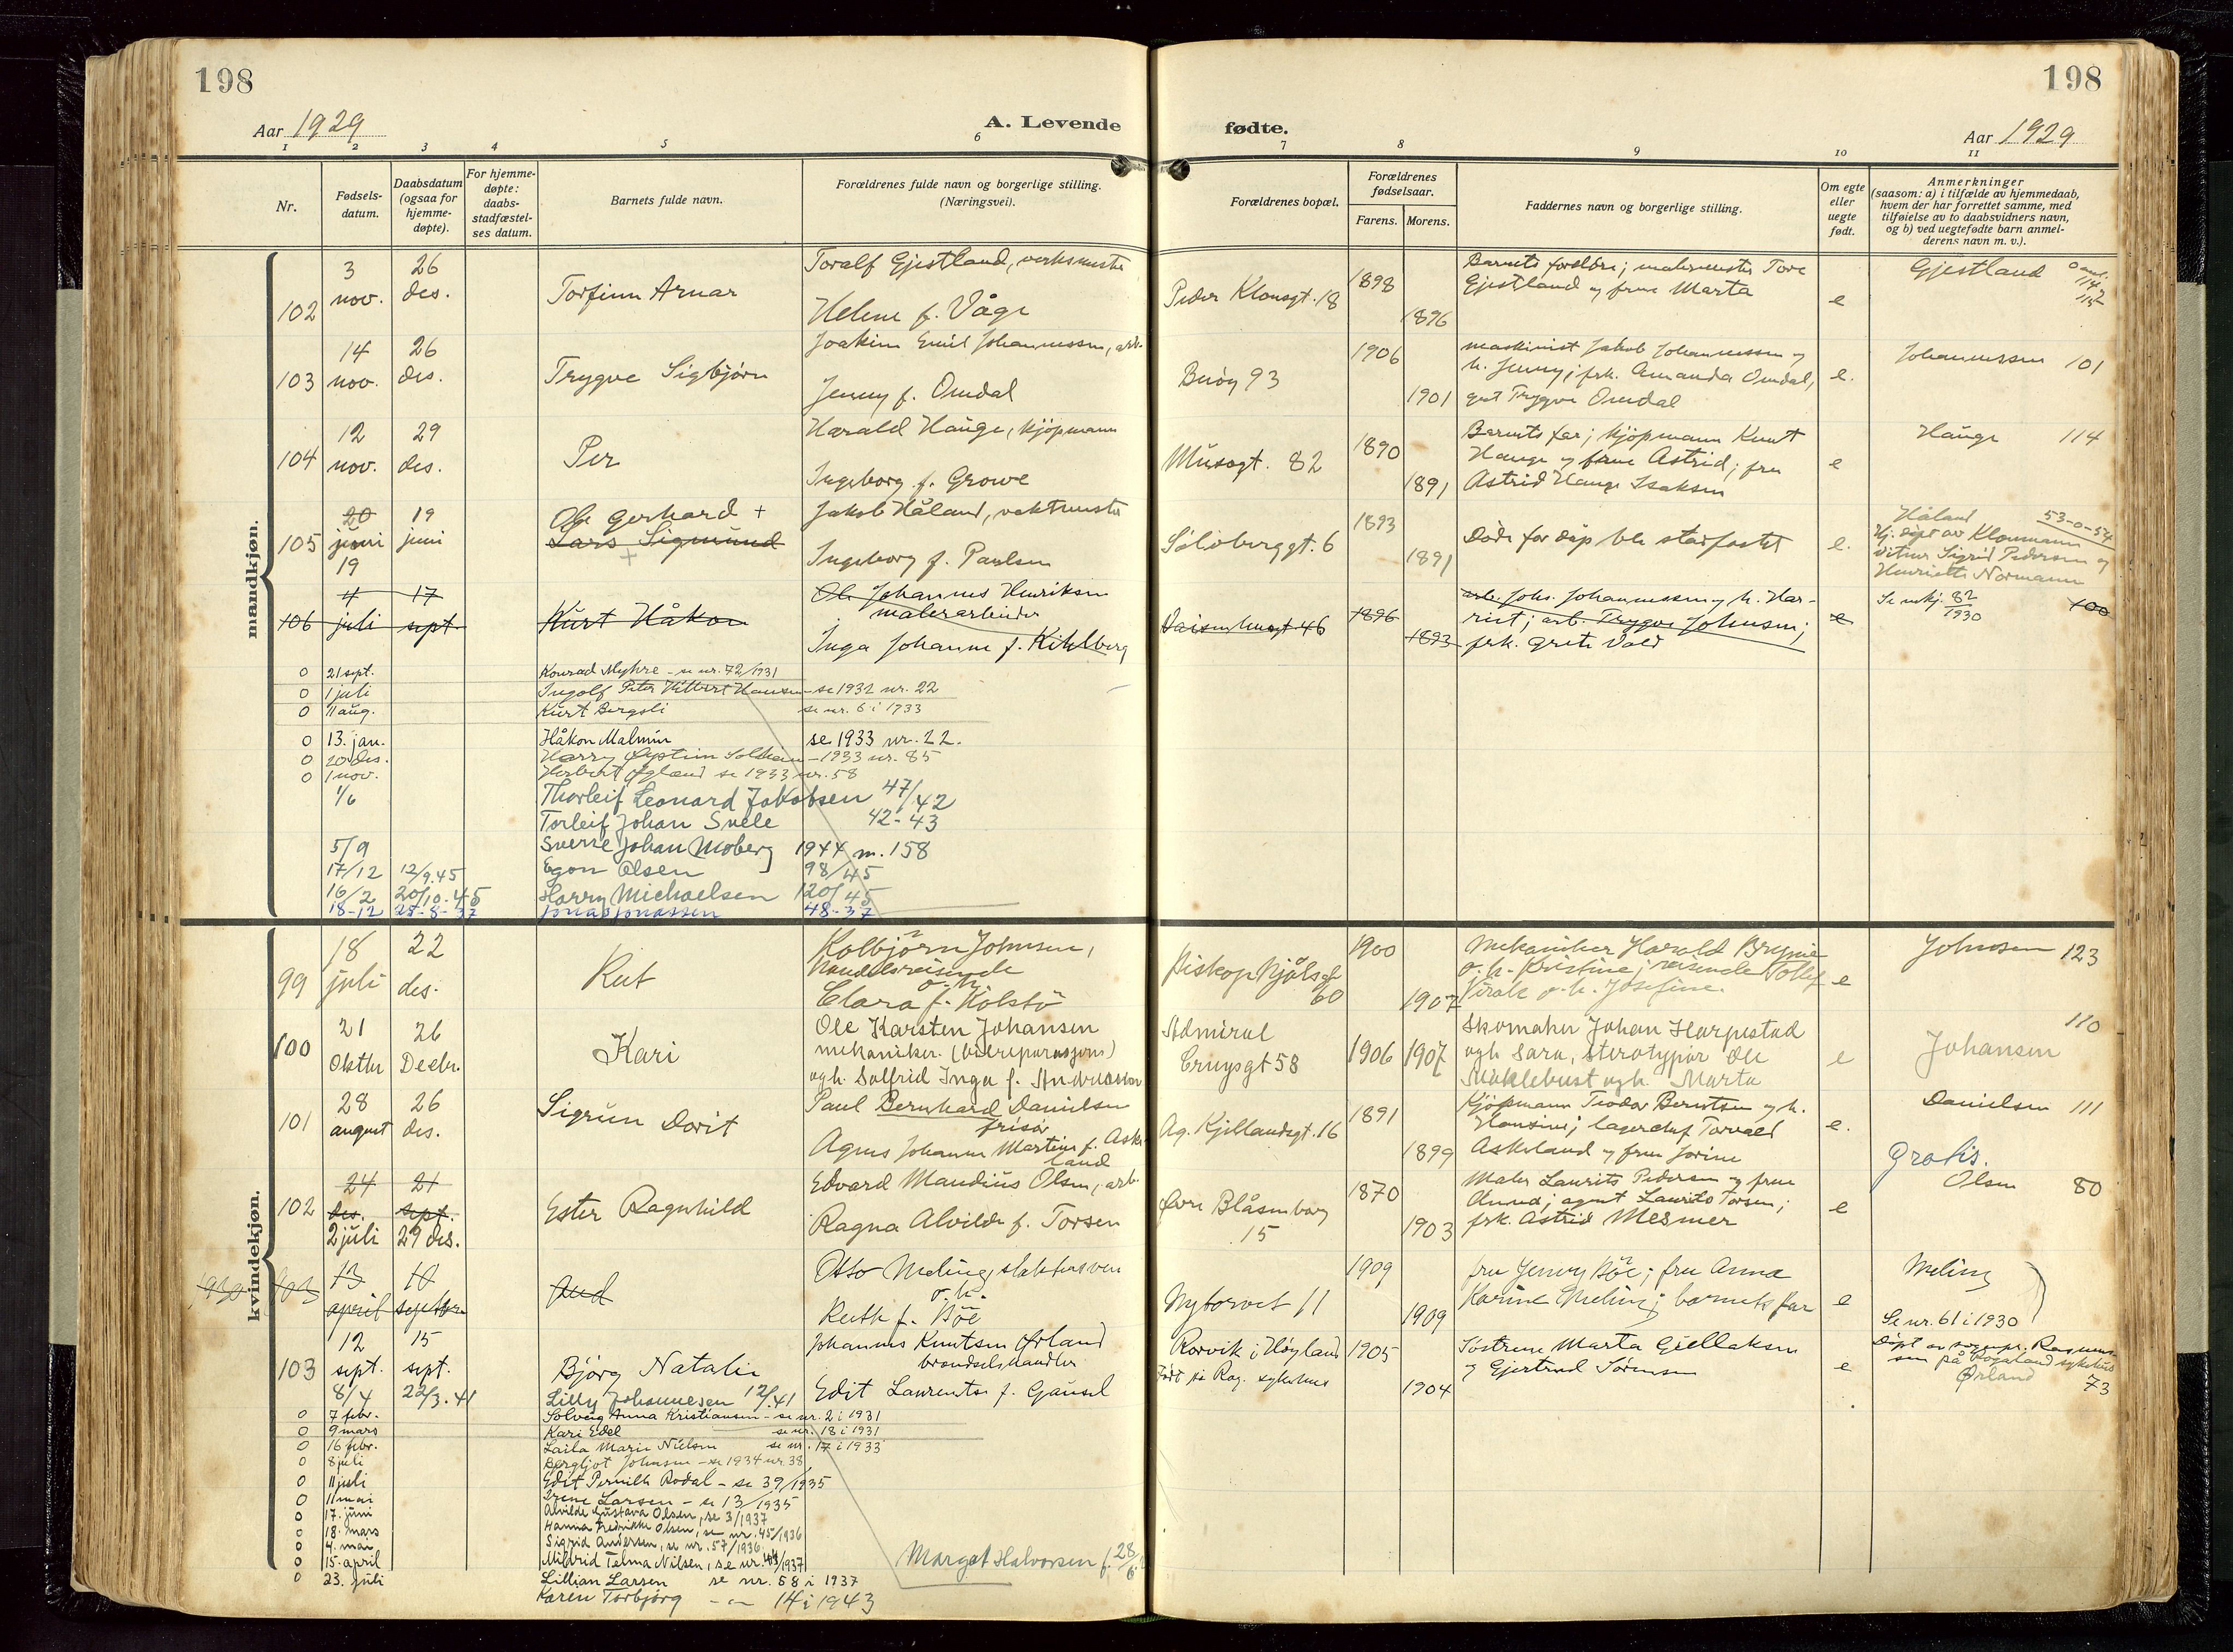 198
198
Aar 1929
A. Levende
fødte.
Aar 1929
1 2 3 4 5 6 7 8 9 10 11
Nr.
Fødsels-
datum.
Daabsdatum
(ogsaa for
hjemme-
døpte).
For hjemme-
døpte:
daabs-
stadfæstel-
ses datum.
Barnets fulde navn.
Forældrenes fulde navn og borgerlige stilling.
(Næringsvei).
Forældrenes bopæl.
Forældrenes
fødselsaar.
Farens. Morens.
Faddernes navn og borgerlige stilling.
Om egte
eller
uegte
født.
Anmerkninger
(saasom: a) i tilfælde av hjemmedaab,
hvem der har forrettet samme, med
tilføielse av to daabsvidners navn,
og b) ved uegtefødte barn anmel-
derens navn m. v.).
mandkjøn.
102
3 nov.
26 des.
Torfinn Arnar
Toralf Gjestland, verksmester
Helene f. Våge
Peder Klowsgt. 18
1898
1896
Barnets foreldre; malermester Tore
Gjestland og frue Marta
e
Gjestland
103
14 nov.
26 des.
Trygve Sigbjørn
Joakim Emil Johannessen, arb.
Jenny f. Omdal
Buøy 93
1906
1901
maskinist Jakob Johannessen og
h. Jenny; frk. Amanda Omdal,
gut Trygve Omdal
e.
Johannessen 101
104
12 nov.
29 des.
Per
Harald Hauge, kjøpmann
Ingeborg f. Growe
Musegt. 82
1890
1891
Barnets far; kjøpmann Knut
Hauge og frue Astrid; fru
Astrid Hauge Isaksen
e
Hauge 114
105
20 juni
19
19 juni
Ole Gerhard +
Lars Sigmund
+
Jakob Håland, vaktmester
Ingeborg f. Paulsen
Sølvberggt. 6
1893
1891
Døde før dåp ble stadfestet
e.
Håland 53-0-54
Hj. døpt av Kloumann
Vitner Sigrid Pedersen og
Henriette Normann
106
4 juli
17 sept.
Kurt Håkon
Ole Johannes Henriksen
malerarbeider
Inga Johanne f. Kihlberg
1896
1893
arb. Johs. Johannessen og h. Har-
riet; arb. Trygve Johnsen;
frk. Grete Vold
e
Se mkj. 82
1930
100
0 21 sept. Konrad Myhre - se nr. 72/1931
0 1 juli Ingolf Peter Hilbert Hansen - se 1932 nr. 22
0 11 aug. Kurt Bergsli se nr. 6 i 1933
0 13. jan. Håkon Malmin se 1933 nr. 22.
0 20 des. Harry - 1933 nr. 85
0 1 nov. Herbert Øgland se 1933 nr. 58
1/6 Thorleif Leonard Jakobsen 47/42
Torleif Johan Svele 42-43
5/9 Sverre Johan Moberg 1944 nr. 158
17/12 12/9.45 Egon Olsen 98/45
16/2 20/10-45 Harry Michaelsen 120/45
18-12 28-8-37 Jonas Jonassen 48-37
kvindekjøn.
99
18 juli
22 des.
Rut
Kolbjørn Johnsen,
handelsreisende
o. h.
Clara f. Kolstø
Biskop Njålsgt
60
1900
1907
Mekaniker Harald Bryne
o. h. Kristine; reisende Tollef
Virak o. h. Josefine.
e
Johnsen 123
100
21 Oktbr
26 Decbr.
Kari
Ole Karsten Johansen
mekaniker. (bilreparasjons)
og h. Solfrid Inga f. Andreassen
Admiral
Cruysgt 58
1906 1907
Skomaker Johan Harpestad
og h. Sara, sterotypør Ole
Møklebust og h. Marta
e
110
Johansen
101
28 august
26 des.
Sigrun Dorit
Paul Bernhard Danielsen
frisør
Agnes Johanne Martine f. Aske-
land
Ag. Kjellandsgt. 16
1891
1899
Kjøpmann Teodor Berntsen og h.
Hansine; lagerchef Torvald
Askeland og frue Jorine
e.
Danielsen 111
102
24 des.
21 sept.
2 juli
29 des.
Ester Ragnhild
Edvard Maudius Olsen, arb.
Ragna Alvilde f. Torsen
Øvre Blåsenborg
15
1870
1903
Maler Laurits Pedersen og frue
Anna; agent Laurits Torsen;
frk. Astrid Mesmer
e
Gratis.
Olsen 80
1930 103
13 april
10 septbr.
Aud
Otto Meling, slaktersven
o. h.
Ruth f. Bøe
Nytorvet 11
1909
1909
fru Jenny Bøe; fru Anna
Karine Meling; barnets far
e
Meling
Se nr. 61 i 1930
103
12 sept.
15 sept.
Bjørg Natalie
Johannes Knutsen Ørland
brændselshandler
Edit Laurentse f. Gausel
Rorvik i Høyland
Født på Rog. sykehus
1905
1904
Søstrene Marta Giellaksen
og Gjertrud Sørensen
e
Døpt av sogepr. Rasmus-
sen på Rogaland sykehus
Ørland 73
8/4 22/3.41 Lilly Johannesen 12/41
0 7 febr. Solveig Anna Kristiansen - se nr. 2 i 1931
0 9 mars Kari Edel se nr. 18 i 1931
0 16 febr. Laila Marie Nielsen se nr. 17 i 1933
0 8 juli Bergljot Johnsen - se 1934 nr. 38
0 11 juli Edit Pernille Rodal - se 39/1935
0 11 mai Irene Larsen - se 13/1935
0 17. juni Alvilde Gustava Olsen, se 3/1937
0 18. mars Hanna Fredrikke Olsen, se nr. 45/1936
0 4. mai Sigrid Andersen, se nr. 57/1936.
0 15. april Mildrid Telma Nilsen, se nr. 44/1937
0 23. juli Lillian Larsen se nr. 58 i 1937
Karen Torbjørg - " - 14 i 1943
Margot Halvorsen f. 28/6